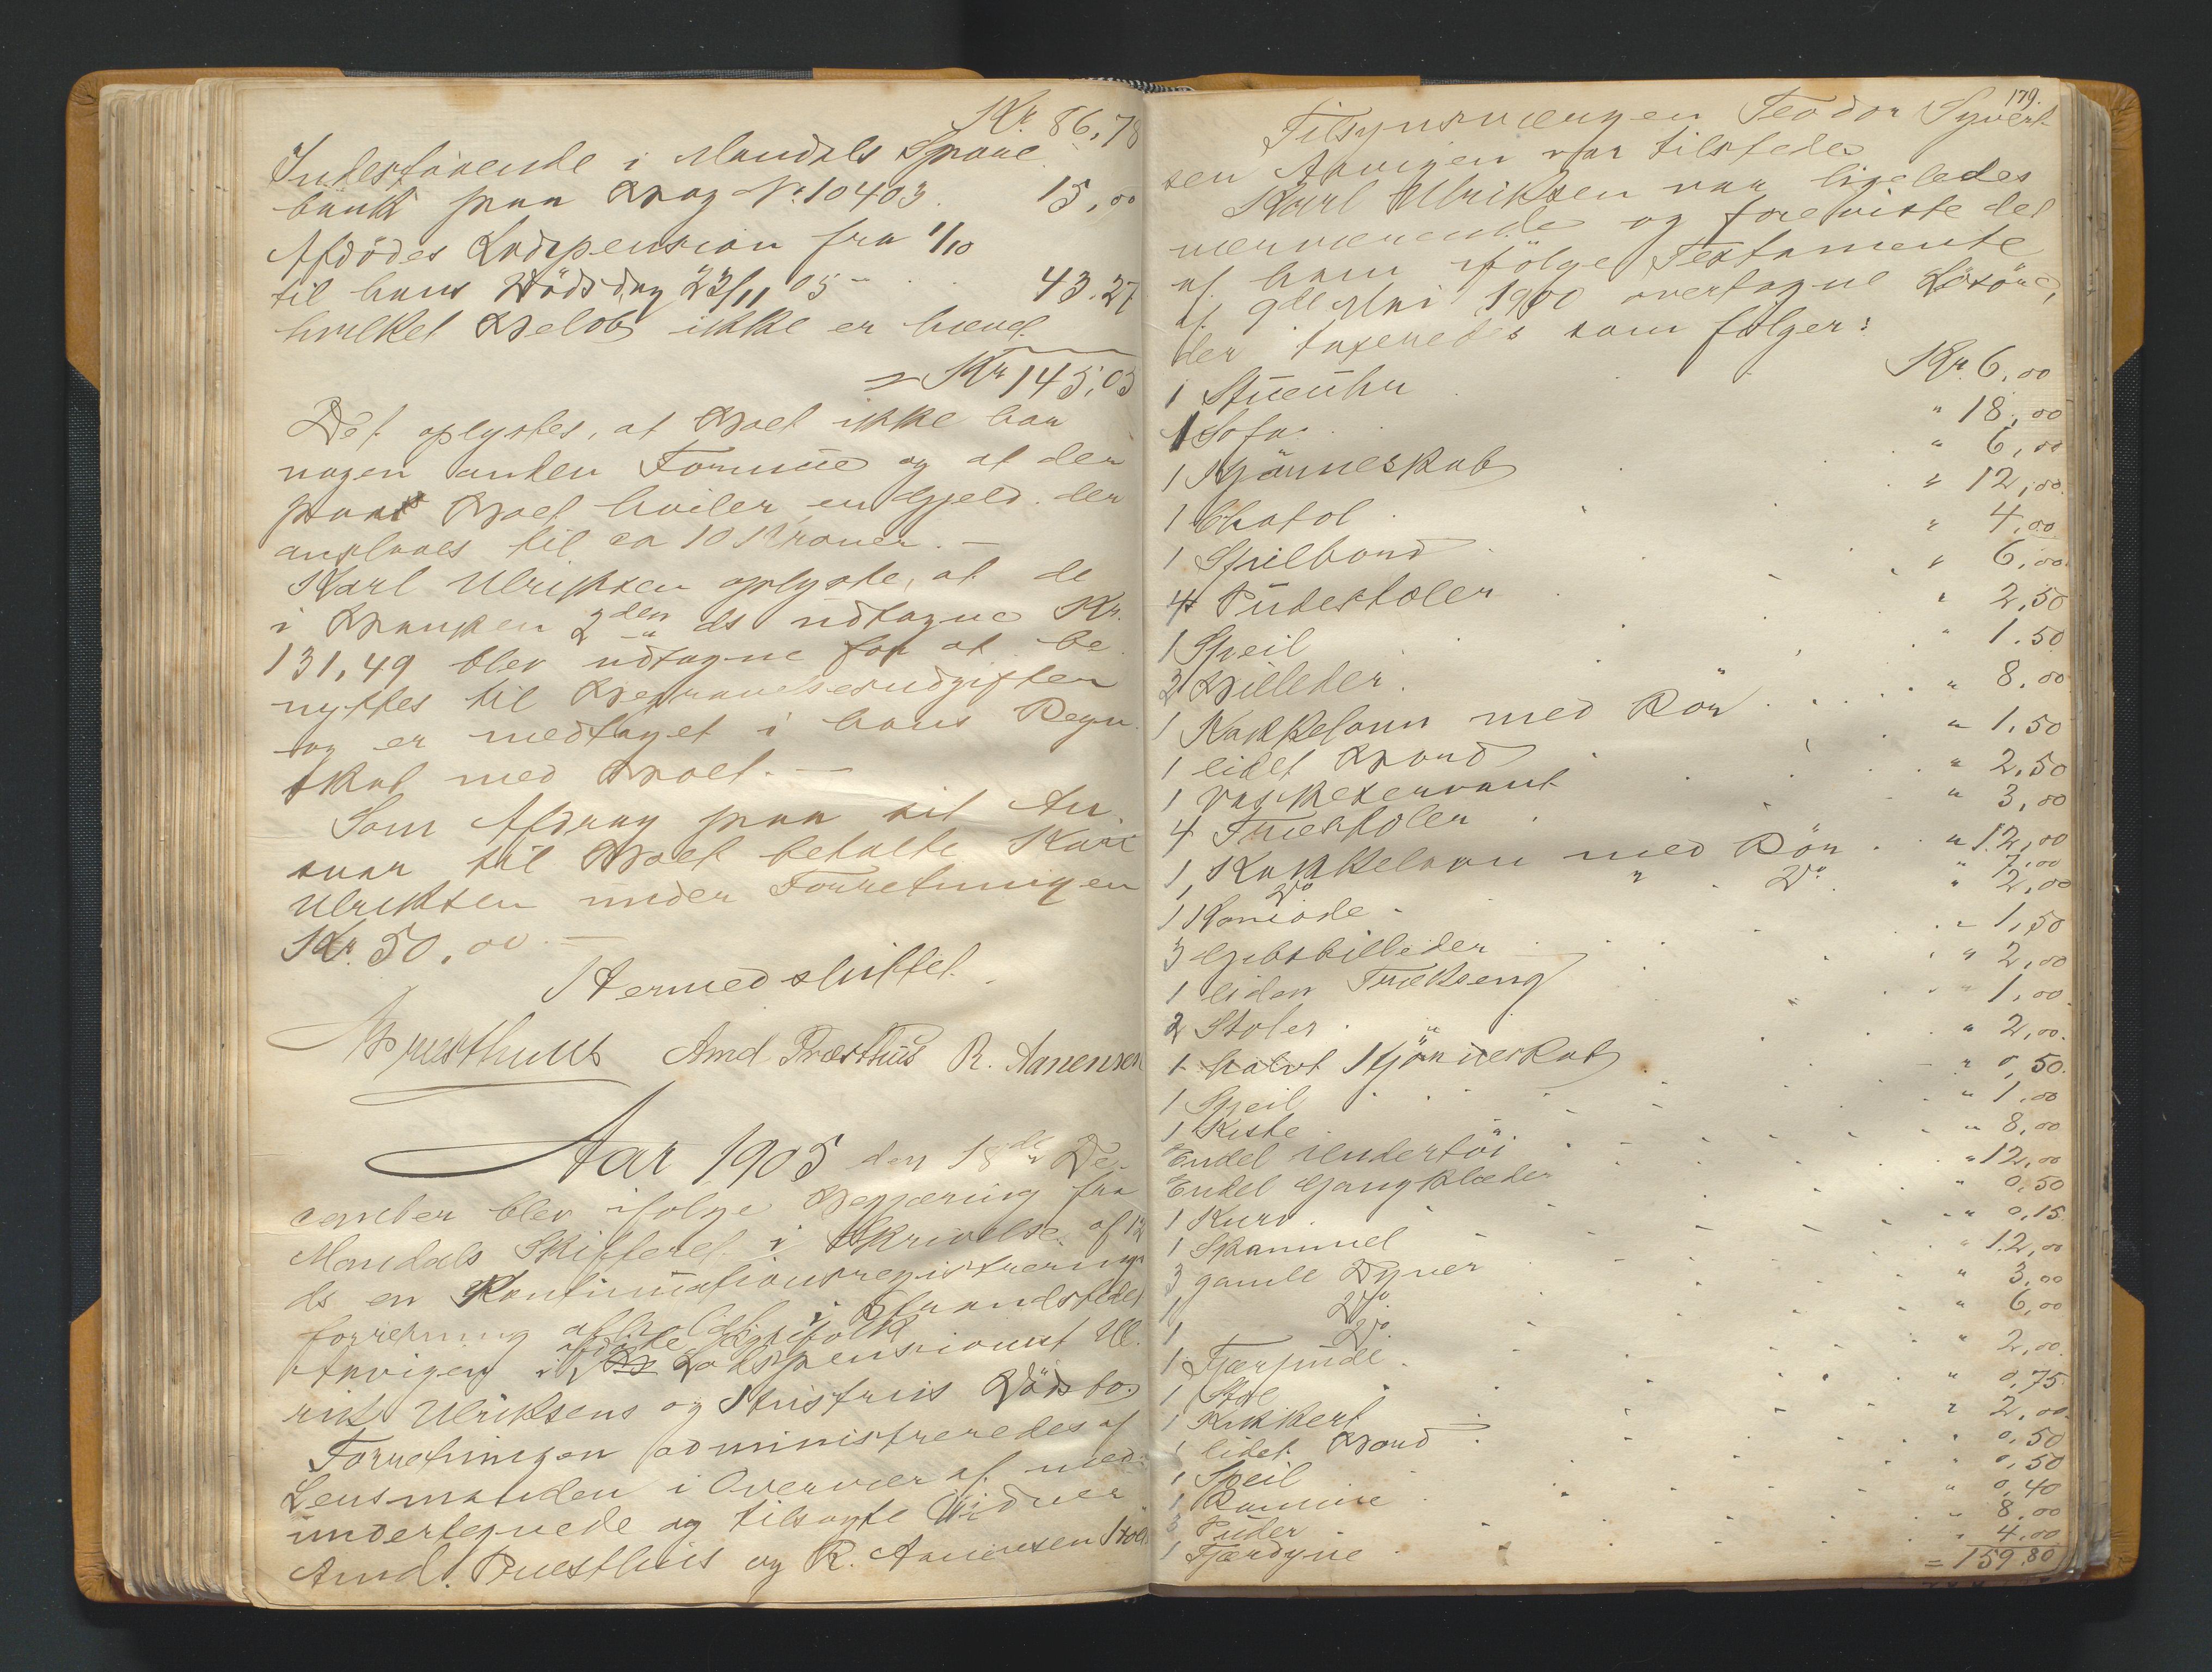 Kr. 86,78
Indestaaende i Mandals Spare
bank paa Bog No. 10403. 15,00
Afdödes Lodspension fra 1/10
til hans Dödsdag 23/11 05 - 43.27
hvilket Belöb ikke er hævd
= Kr 145,05
Det oplystes, at Boet ikke har
nogen anden Formue og at der
paa Boet hviler en Gjeld der
anslaaes til ca 10 Kroner. -
Karl Ulriksen oplyste, at de
i Banken 2den ds udtagne Kr.
131,49 blev udtagne for at be
nyttes til Begravelsesudgifter
og er medtaget i hans Regn
skab med Boet. -
Som Afdrag paa sit An
svar til Boet betalte Karl
Ulriksen under Forretningen
Kr. 50,00 -
Hermed sluttet.
Præsthuus Arnd Præsthus R. Aanensen
Aar 1905 den 18de De-
cember blev ifölge Begjæring fra
Mandals Skifteret i Skrivelse af 12
ds en Kontinuationsregistrerings
forretning afholdt i Strandstedet
Aavigen i afdöde Egtefolk Lodspensionist Ul
rik Ulriksens og Hustrus Dödsbo.
Forretningen administreredes af
Lensmanden i Overvær af med-
undertegnede og tilsagte Vidner
Arnd. Præsthus og R. Aanensen
179.
Tilsynsværgen Teodor Syvert
sen Aavigen var tilstede
Karl Ulriksen var ligeledes
nærværende og foreviste det
af ham ifölge Testamente
af 9de Mai 1900 overtagne Lösöre,
der taxeredes som følger:
1 Stueuhr Kr. 6,00
1 Sofa " 18,00
1 Hjörneskab " 6,00
1 Chatol " 12,00
1 Spilbord " 4,00
4 Pudestoler " 6,00
1 Speil " 2,50
2 Billeder " 1.50
1 Kakkelovn med Rör " 8,00
1 lidet Bord " 1,50
1 Vaskeservant " 2,50
4 Træstoler " 3,00
1 Kakkelovn med Rör " 12,00
1 Do " Do " 7,00
1 Komode " 2,00
3 Gibsbilleder " 1,50
1 liden Trækseng " 2,00
2 Stoler " 1,00
1 halvt Hjörneskab " 2,00
1 Speil " 0,50
1 Kiste " 1,00
Endel Undertöi " 8,00
Endel Gangklæder " 12,00
1 Kurv " 0,50
1 Skammel " 0,15
3 gamle Dyner " 12,00
1 Do. " 3,00
1 Do. " 6,00
1 Fjærpude " 2,00
1 Stol " 0,75
1 Kikkert " 2,00
1 lidet Bord " 0,50
1 Speil " 0,50
1 Ramme " 0,40
3 Puder " 8,00
1 Fjærdyne " 4,00
= 159,80